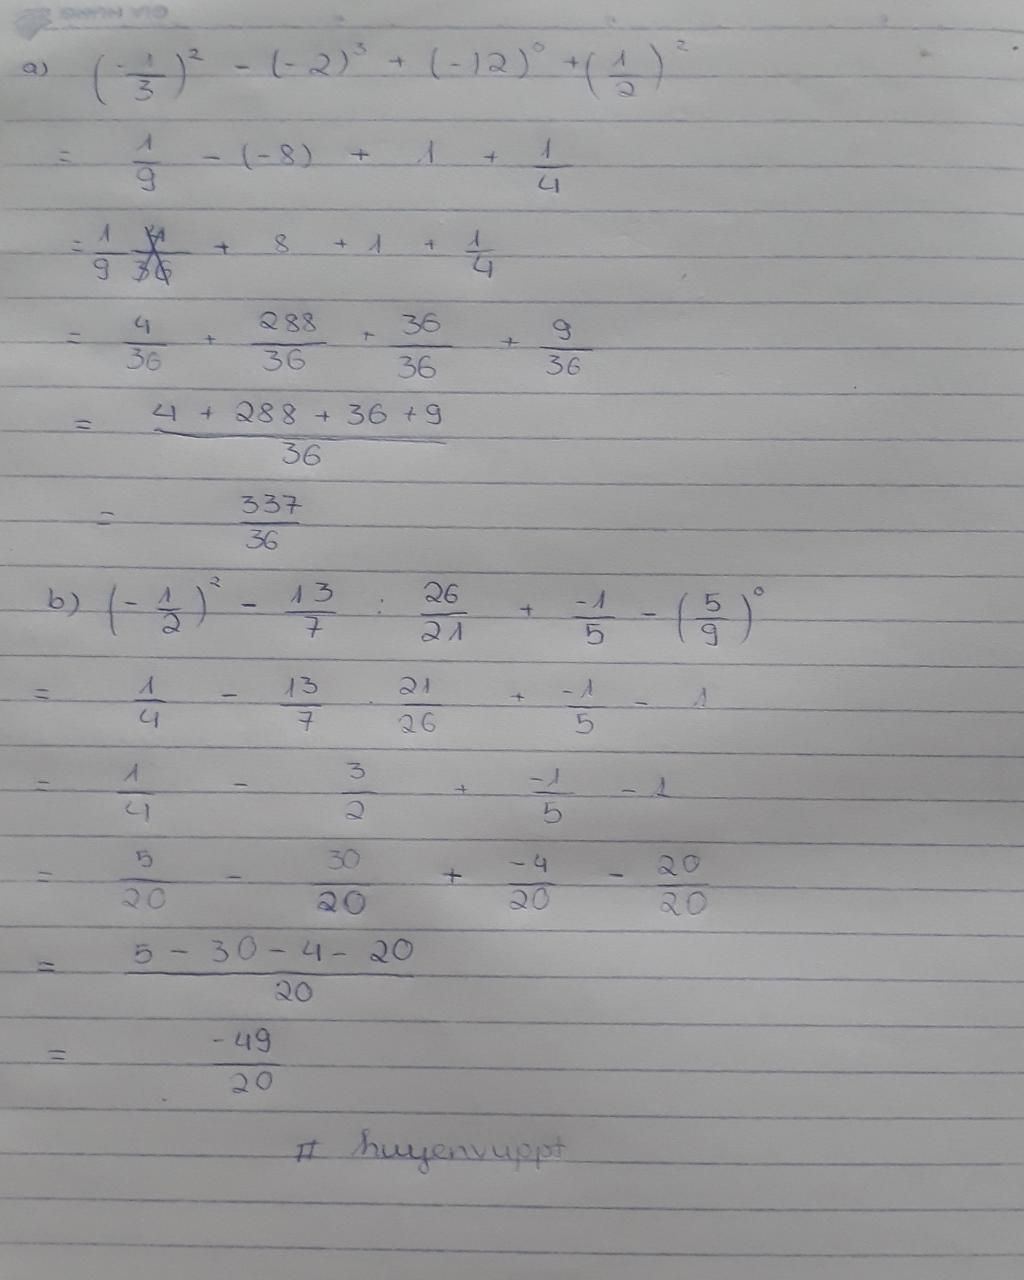 a) (-1/3)² - (-2)³ + (-12)⁰ + (1/2)²
= 1/9 - (-8) + 1 + 1/4
= 1/9 + 8 + 1 + 1/4
= 4/36 + 288/36 + 36/36 + 9/36
= (4 + 288 + 36 + 9)/36
= 337/36
b) (-1/2)² - 13/7 : 26/21 + -1/5 - (5/9)⁰
= 1/4 - 13/7 . 21/26 + -1/5 - 1
= 1/4 - 3/2 + -1/5 - 1
= 5/20 - 30/20 + -4/20 - 20/20
= (5 - 30 - 4 - 20)/20
= -49/20
# huyenvuppt